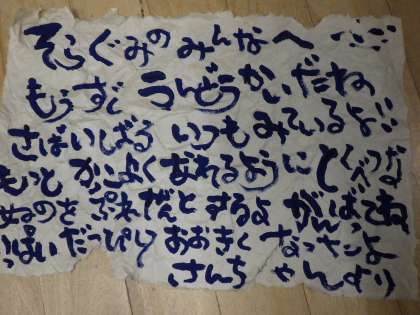 そらぐみのみんなへ
もうすぐうんどうかいだね
さばいばる いつもみているよ!!
もっとかっこよくおれるようにとくべつな
ぬのをぷれぜんとするよ がんばってね
っぱいだっぴしておおきくなったよ
さんちゃんより